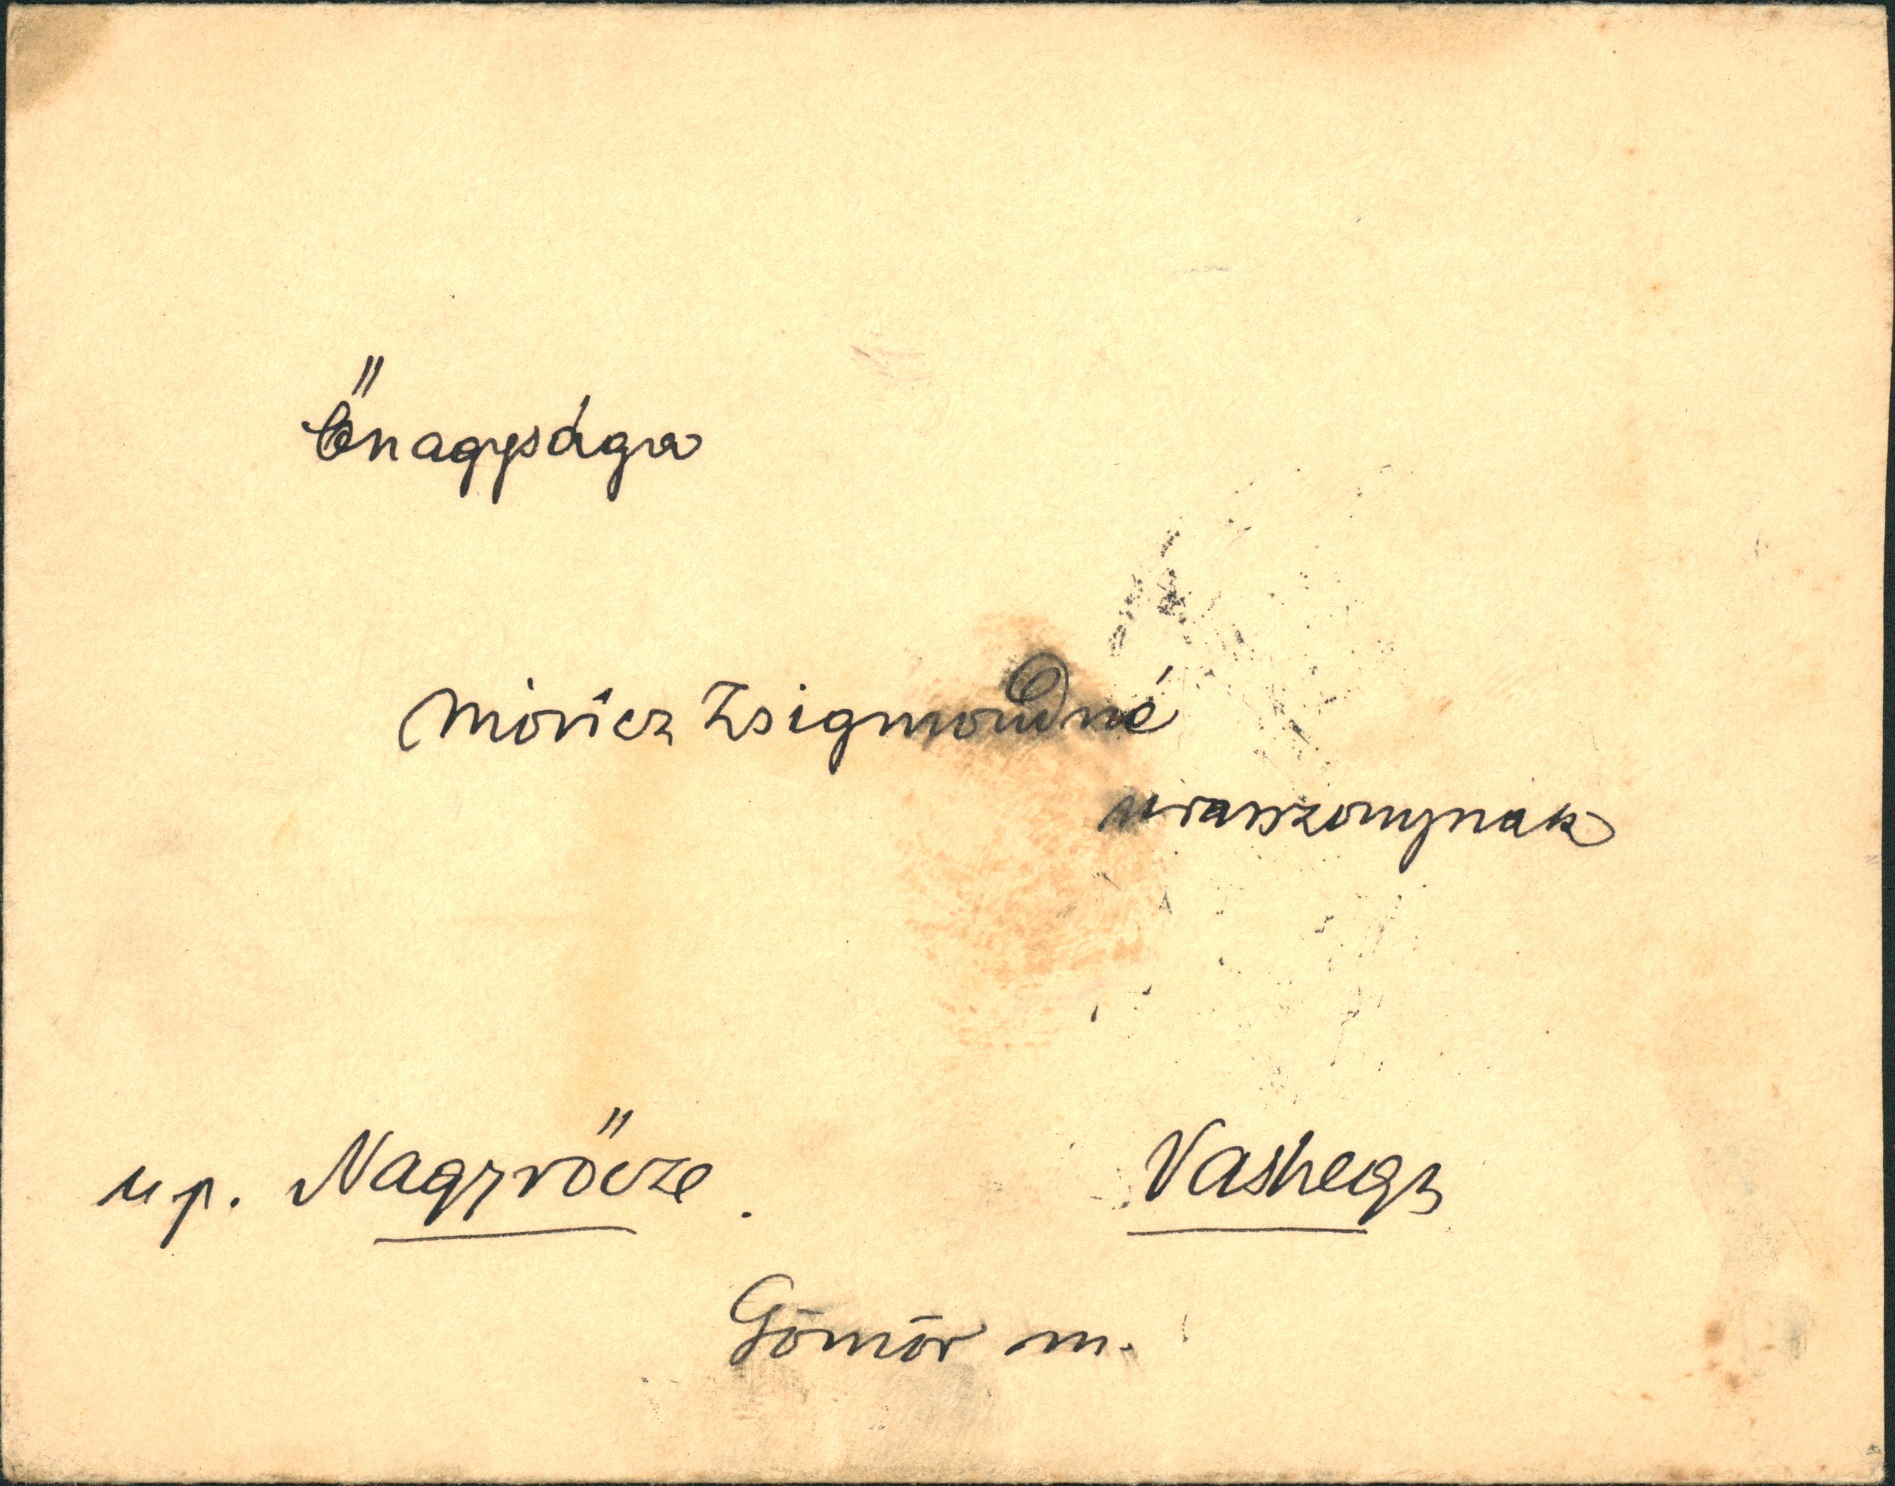 Őnagysága
Móricz Zsigmondné
urasszonynak
u p. Nagyrőcze. Vashegy
Gömör m.